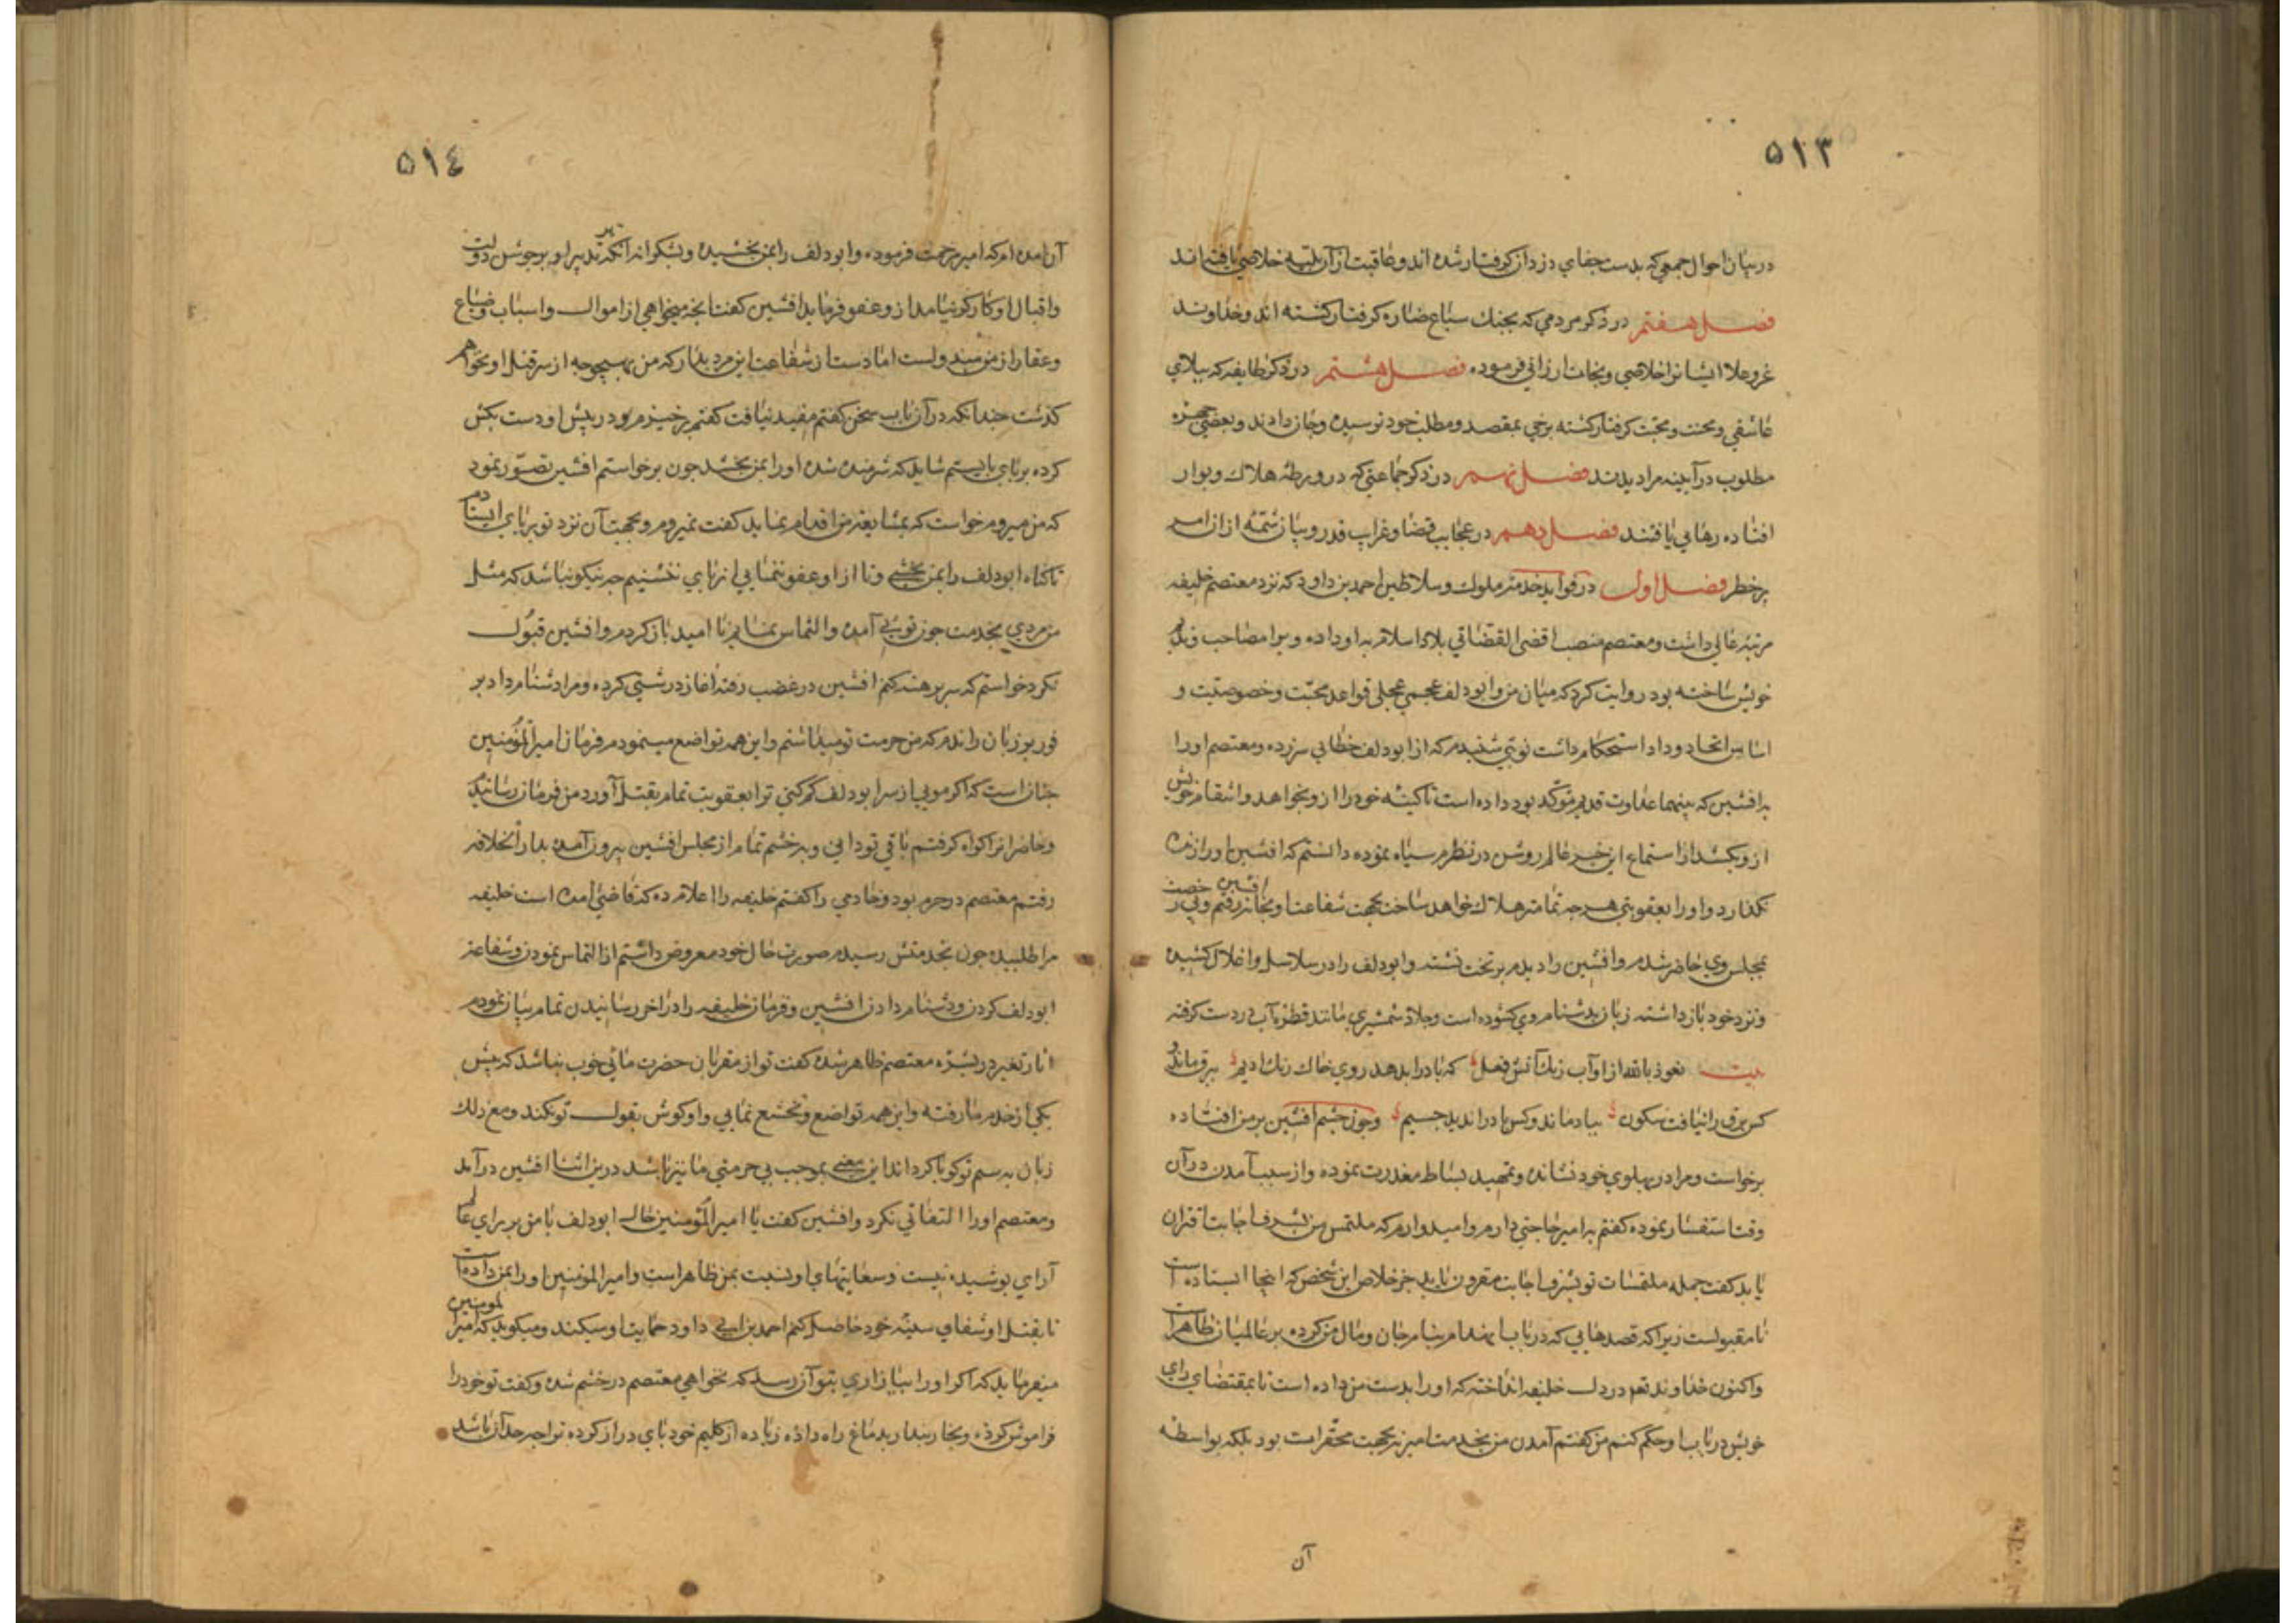 ۵۱۳
در بیان احوال جمعی که بدست جفای دزدان گرفتار شده اند و عاقبت از آن بلیه خلاصی یافته اند
فصل هفتم در ذکر مردمی که بچنک سباع ضاره کرفتار کشته اند و خداوند
عز و علا ایشانرا خلاصی و نجات ارزانی فرموده فصل هشتم در ذکر طایفه که ببلای
عاشقی و محنت و محبت کرفتار کشته برخی بمقصد و مطلب خود نرسیده و جان دادند و بعضی چهره
مطلوب در آیینه مراد بدیدند فصل نهم در ذکر جماعتی که در ورطه هلاک و بوار
افتاده رهایی یافتند فصل دهم در عجایب قضا و غرایب قدر و بیان شمّه از ان امر
پرخطر فصل اول در فواید خدمتر ملوک و سلاطین احمد بن داود که نزد معتصم خلیفه
مرتبه عالی داشت و معتصم منصب اقضی القضاتی بلاد اسلام به او داده و ویرا مصاحب و ندیم
خویش ساخته بود روایت کرد که میان من و ابودلف عجمی عجلی قواعد محبّت و خصوصیّت و
اساس اتحاد و وداد استحکام داشت نوبتی شنیدم که از ابودلف خطایی سرزده و معتصم او را
به افشین که بینهما عداوت قدیم مؤکّد بود داده است تا کینه خود را از و بخواهد و انتقام خویش
از و بکشد از استماع این خبر عالم روشن در نظرم سیاه نموده دانستم که افشین او را زنده
نکذارد و او را بعقوبتی هر چه تمامتر هلاک خواهد ساخت بجهت شفاعت او بخانه افشین رفتم و بی رخصت
بمجلس وی حاضر شدم و افشین را دیدم بر تخت نشسته و ابودلف را در سلاسل و اغلال کشیده
و نزد خود بازداشته زبان بدشنام وی کشوده است و جلاد شمشیری مانند قطره آب در دست کرفته
بیت نعوذ بالله از او آب رنک آتش فعل که باد را بدهد روی خاک رنک ادیم ببرق ماند و
کس برق را نیافت سکون بباد ماند و کس باد را ندید جسیم و چون چشم افشین بر من افتاده
برخواست و مرا در پهلوی خود نشانده و تمهید بساط معذرت نموده و از سبب آمدن در آن
وقت استفسار نموده کفتم به امیر حاجتی دارم و امیدوارم که ملتمس من بشرف اجابت اقتران
یابد کفت جمله ملتمسات تو بشرف اجابت مقرون یابد جز خلاص این شخص که اینجا ایستاده است
نا مقبولست زیرا که قصدهایی که در باب انهدام بنام جان و مال من کرده بر عالمیان ظاهر است
و اکنون خداوند تعم در دل خلیفه انداخته که او را بدست من داده است تا بمقتضای رای
خویش در باب او حکم کنم من کفتم آمدن من بخدمت امیر نه بجهت محقّرات بود بلکه بواسطه
آن
۵۱٤
آن آمده ام که امیر مرحمت فرموده و ابودلف را بمن بخشیده و بشکرانه آنکه تدبیر او بر جوشن دولت
و اقبال او کارکر نیامد از و عفو فرماید افشین کفت تا بچه میخواهی از اموال و اسباب و ضیاع
و عقار از من مبذولست اما دست از شفاعت این مرد بدار که من بهیچوجه از سر قتل او نخواهم
کذشت چندانکه در آن باب سخن کفتم مفید نیافت کفتم برخیزم و در پیش او دست بکش
کرده بر پای بایستم شاید که شرمنده شده او را بمن بخشد چون برخواستم افشین تصوّر نمود
که من میروم خواست که بمشایعت من اقدام نماید کفت نمیروم و بجهت آن نزد تو بر پای ایستادم
تا کناه ابودلف را بمن بخشی و تا از او عفو ننمایی از پای ننشینم چه نیکو نباشد که مثل
من مردی بخدمت چون تویی آمده و التماس نمایم نا امید باز کردم و افشین قبول
نکرد خواستم که سر برهنه کنم افشین در غضب رفته آغاز درشتی کرده و مرا دشنام داد بر
فور بر زبان راندم که من حرمت تو میداشتم و این همه تواضع مینمودم فرمان امیر المؤمنین
چنان است که اکر مویی از سر ابودلف کم کنی ترا بعقوبت تمام بقتل آورد من فرمان رسانیدم
و حاضرانرا کواه کرفتم باقی تو دانی و بخشم تمام از مجلس افشین بیرون آمده بدار الخلافه
رفتم معتصم در حرم بود و خادمی را کفتم خلیفه را اعلام ده که قاضی آمده است خلیفه
مرا طلبیده چون بخدمتش رسیدم صورت حال خود معروض داشتم از التماس نمودن و شفاعت
ابودلف کردن و دشنام دادن افشین و فرمان خلیفه را در آخر رسانیدن تمام بیان نمودم
آثار تغیر در بشره معتصم ظاهر شده کفت تو از مقربان حضرت مائی خوب نباشد که پیش
یکی از خدم ما رفته و این همه تواضع و تخشع نمایی و او کوش بقول تو نکند و مع ذلک
زبان به ستم تو کویا کرداند این معنی موجب بی حرمتی ما نیز باشد در این اثنا افشین در آمد
و معتصم او را التفاتی نکرد و افشین کفت یا امیر المؤمنین حال ابودلف با من بر رای عالم
آرای پوشیده نیست و سعایتهای او نسبت بمن ظاهر است و امیر المؤمنین او را بمن داده است
تا بقتل او شفای سینه خود حاصل کنم احمد بن ابی داود حمایت او میکند و میکوید که امیر المومنین
میفرماید که اکر او را بیازاری بتو آن رسد که نخواهی معتصم در خشم شده و کفت تو خود را
فراموش کرده و بخار پندار بدماغ راه داده زیاده از کلیم خود پای دراز کرده ترا چه حد آن باشد